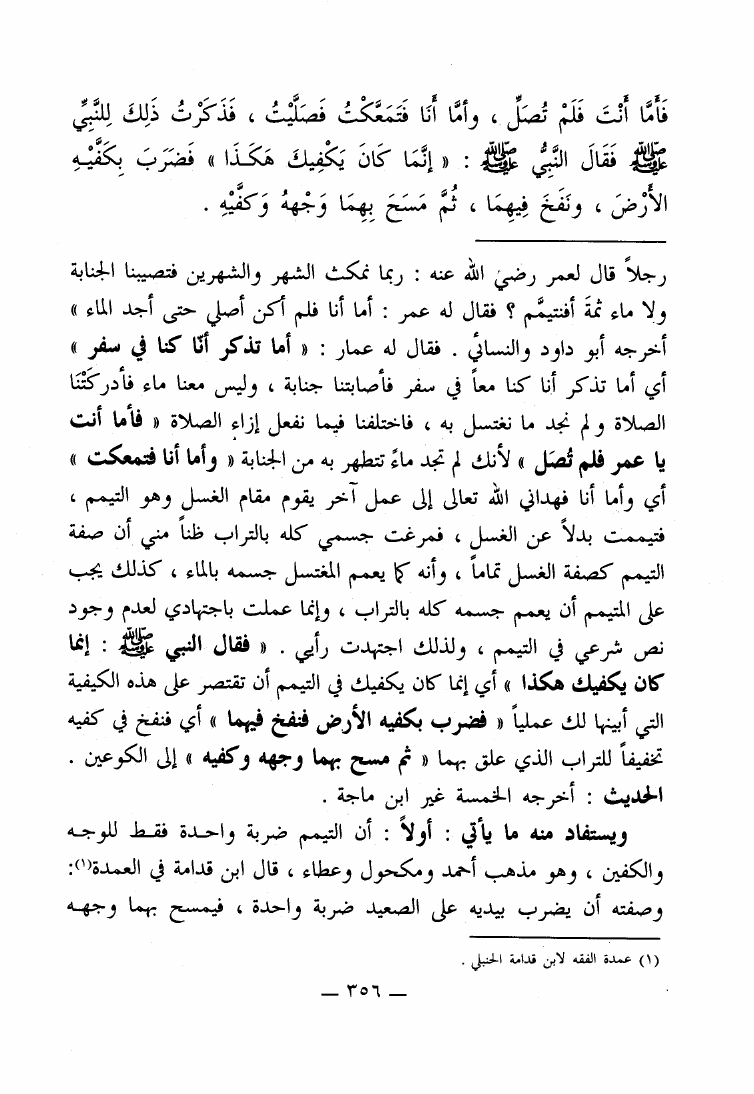 فَأَمَّا أَنْتَ فَلَمْ تُصَلِّ ، وأمَّا أَنَا فَتَمَعَّكْتُ فَصَلَّيْتُ ، فَذَكَرْتُ ذَلِكَ لِلنَّبِيِّ
ﷺ فَقَالَ النَّبِيُّ ﷺ : « إِنَّمَا كَانَ يَكْفِيكَ هَكَـذَا » فَضَرَبَ بِكَفَّيْـهِ
الأَرْضَ ، ونَفَخَ فِيهِمَا ، ثُمَّ مَسَحَ بِهِمَا وَجْهَهُ وَكَفَّيْهِ .
رجلاً قال لعمر رضي الله عنه : ربما نمكث الشهر والشهرين فتصيبنا الجنابة
ولا ماء ثمةَ أفنتيمَّم ؟ فقال له عمر : أما أنا فلم أكن أصلي حتى أجد الماء »
أخرجه أبو داود والنسائي . فقال له عمار : « أما تذكر أنّا كنا في سفر »
أي أما تذكر أنا كنا معاً في سفر فأصابتنا جنابة ، وليس معنا ماء فأدركتْنَا
الصلاة ولم نجد ما نغتسل به ، فاختلفنا فيما نفعل إزاء الصلاة « فأما أنت
يا عمر فلم تُصَل » لأنك لم تجد ماءً تتطهر به من الجنابة « وأما أنا فتمعكت »
أي وأما أنا فهداني الله تعالى إلى عمل آخر يقوم مقام الغسل وهو التيمم ،
فتيممت بدلاً عن الغسل ، فمرغت جسمي كله بالتراب ظناً مني أن صفة
التيمم كصفة الغسل تماماً ، وأنه كما يعمم المغتسل جسمه بالماء ، كذلك يجب
على المتيمم أن يعمم جسمه كله بالتراب ، وإنما عملت باجتهادي لعدم وجود
نص شرعي في التيمم ، ولذلك اجتهدت رأيي . « فقال النبي ﷺ : إنما
كان يكفيك هكذا » أي إنما كان يكفيك في التيمم أن تقتصر على هذه الكيفية
التي أبينها لك عملياً « فضرب بكفيه الأرض فنفخ فيهما » أي فنفخ في كفيه
تخفيفاً للتراب الذي علق بهما « ثم مسح بهما وجهه وكفيه » إلى الكوعين .
الحديث : أخرجه الخمسة غير ابن ماجة .
ويستفاد منه ما يأتي : أولاً : أن التيمم ضربة واحـدة فقـط للوجـه
والكفين ، وهو مذهب أحمد ومكحول وعطاء ، قال ابن قدامة في العمدة(١):
وصفته أن يضرب بيديه على الصعيد ضربة واحدة ، فيمسح بهما وجهـه
(١) عمدة الفقه لابن قدامة الحنبلي .
— ٣٥٦ —